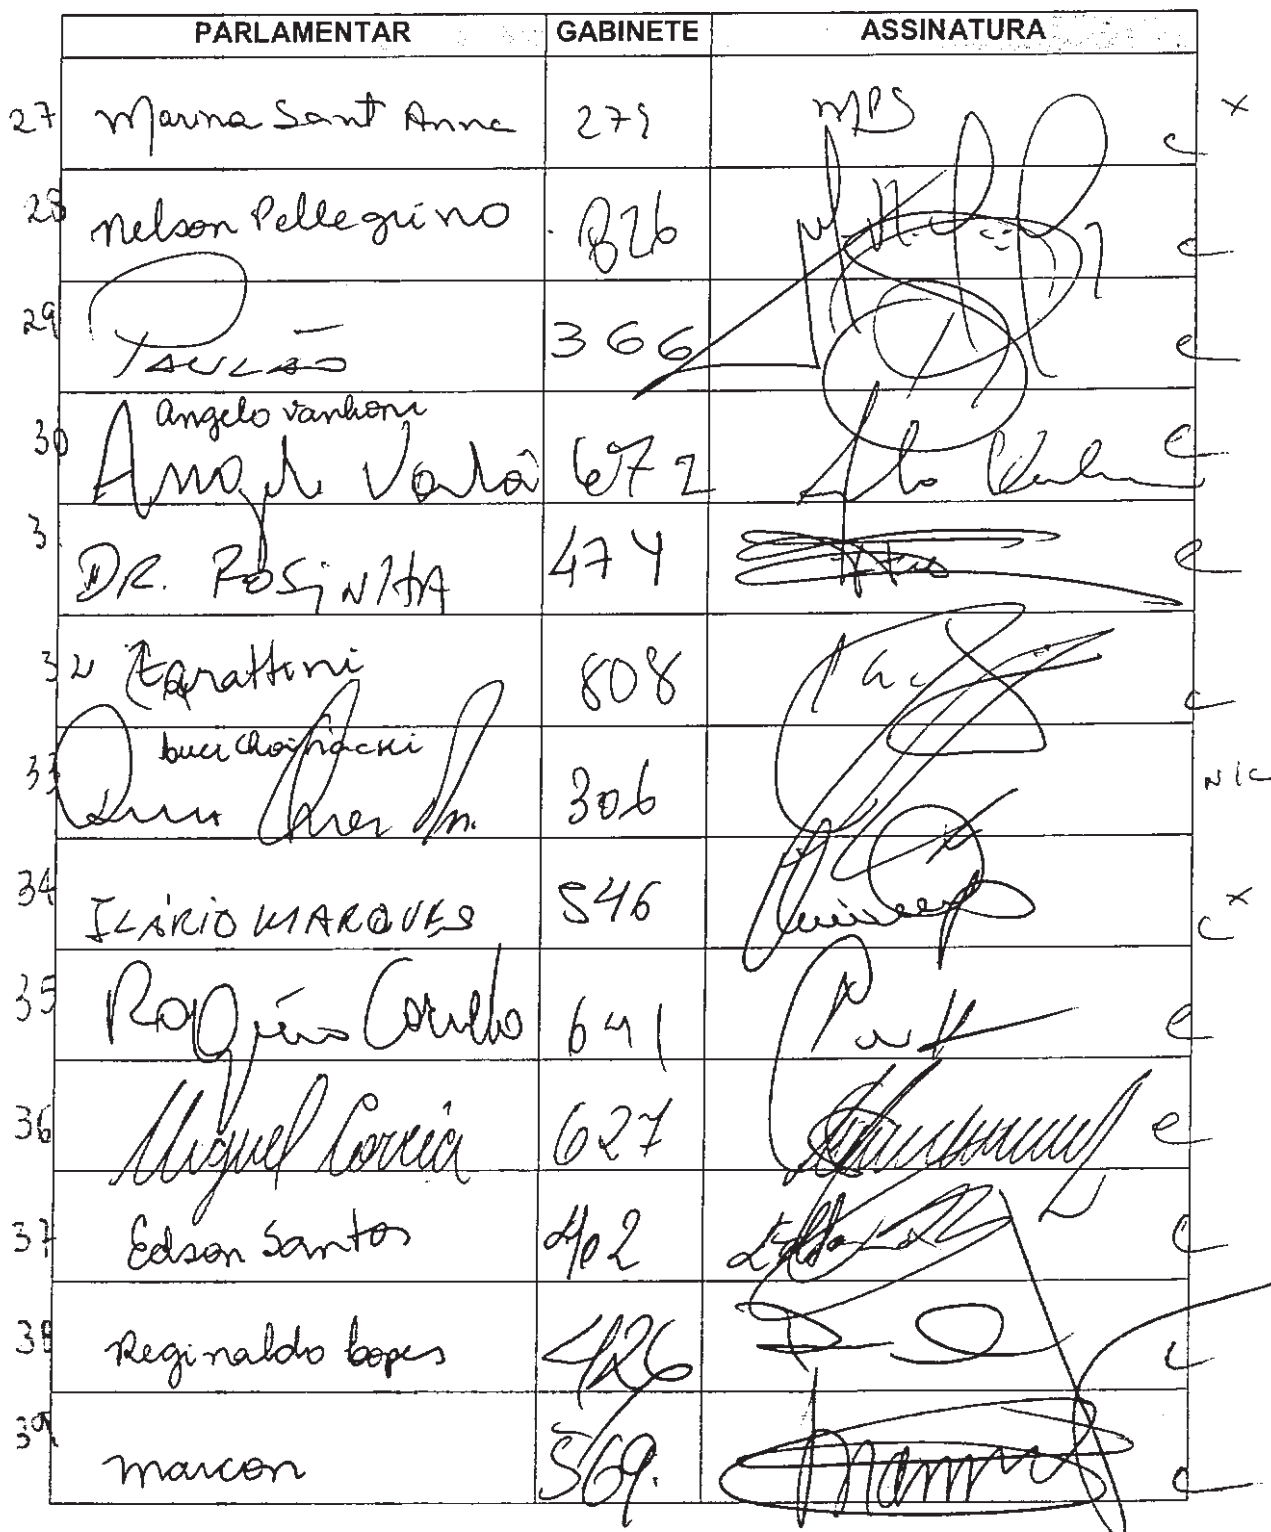 PARLAMENTAR GABINETE ASSINATURA
27 Marina Sant Anna 279 MPS x
28 Nelson Pellegrino 826
29 PAULÃO 366 e
30 Angelo Vanhoni
Angelo 672 e
3 DR. ROSINHA 474 e
32 Zarattini 808 c
33 Luci Choinacki 306 N/C
34 ILÁRIO MARQUES 546 c x
35 Rogério Carvalho 641 e
36 Miguel Corrêa 627 e
37 Edson Santos 402 c
38 Reginaldo Lopes 426 c
39 marcon 569. c